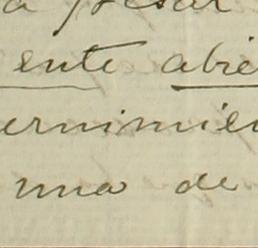 a pesar
ente abie
ernimien
una de